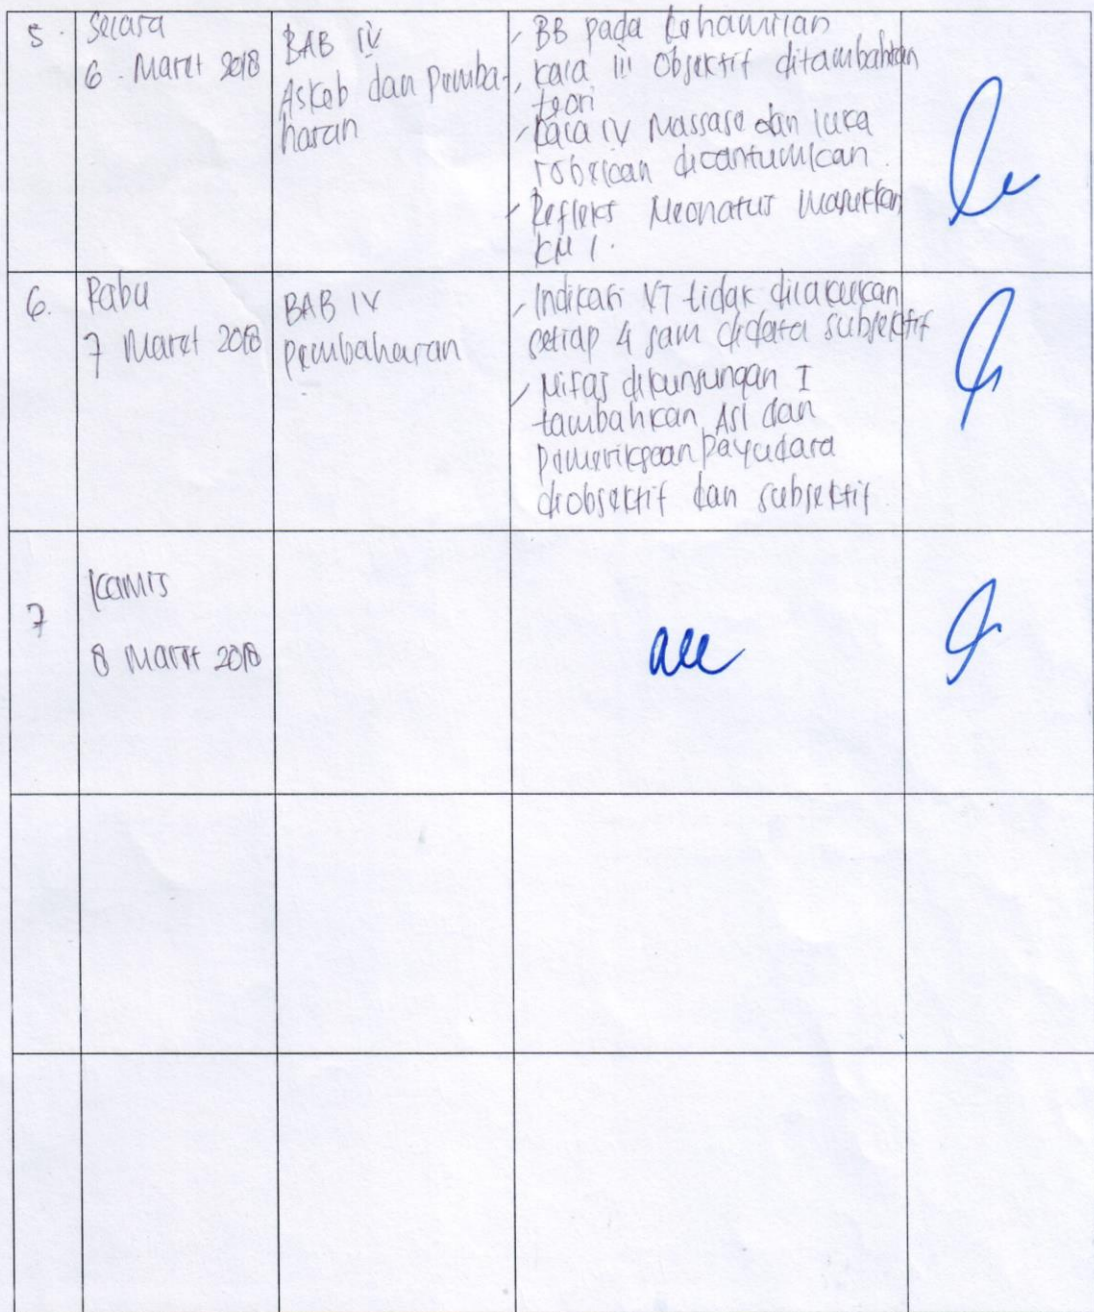 5. Selasa
6. Maret 2018
BAB IV
Askeb dan Pemba-
hasan
- BB pada kehamilan
- kala iii objektif ditambahkan
teori
- kala IV Massase dan luka
robekan dicantumkan.
- Refleks Neonatus masukkan
KN 1.
6. Rabu
7 Maret 2018
BAB IV
Pembahasan
- Indikasi VT tidak dilakukan
setiap 4 jam didata subjektif
- Nifas dikunjungan I
tambahkan ASI dan
pemeriksaan payudara
diobjektif dan subjektif.
7 Kamis
8 Maret 2018
acc